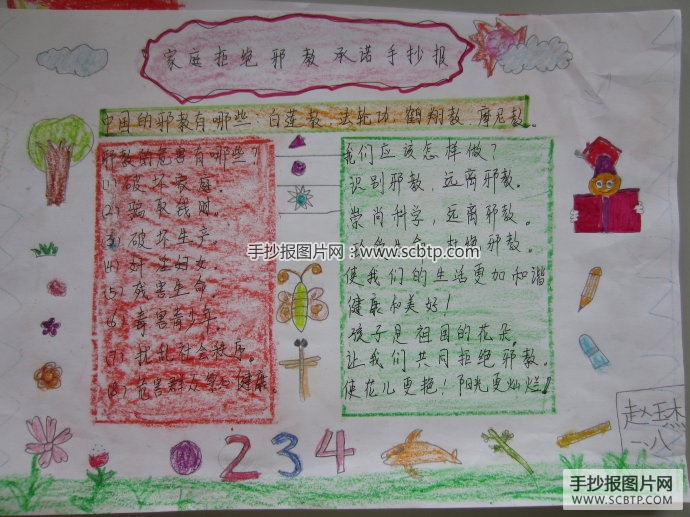 家庭拒绝邪教承诺手抄报
中国的邪教有哪些：白莲教 法轮功 鹤翔教 摩尼教。
邪教的危害有哪些？
(1) 破坏家庭。
(2) 骗取钱财。
(3) 破坏生产。
(4) 奸淫妇女。
(5) 残害生命
(6) 毒害青少年。
(7) 扰乱社会秩序。
(8) 危害群众 健康。
我们应该怎样做？
识别邪教，远离邪教。
崇尚科学，远离邪教。
拒绝邪教。
使我们的生活更加和谐
健康和美好！
孩子是祖国的花朵。
让我们共同拒绝邪教。
使花儿更艳！阳光更灿烂！
手抄报图片网 www.scbtp.com
2 3 4
一、八
手抄报图片网
WWW.SCBTP.COM